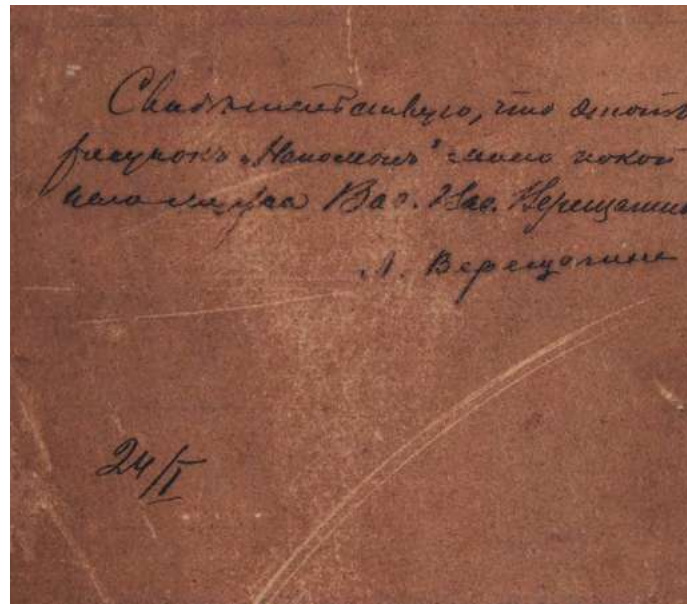 Свидѣтельствую, что этотъ
рисунокъ „Наполеонъ" моего покой
наго мужа Вас. Вас. Верещагина
Л. Верещагина
24/I